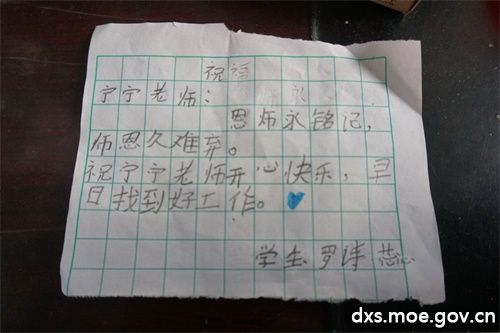 祝福
宁宁老师：
恩师永铭记，
师恩久难弃。
祝宁宁老师开心快乐，早
日找到好工作。
学生 罗诗蕊
dxs.moe.gov.cn